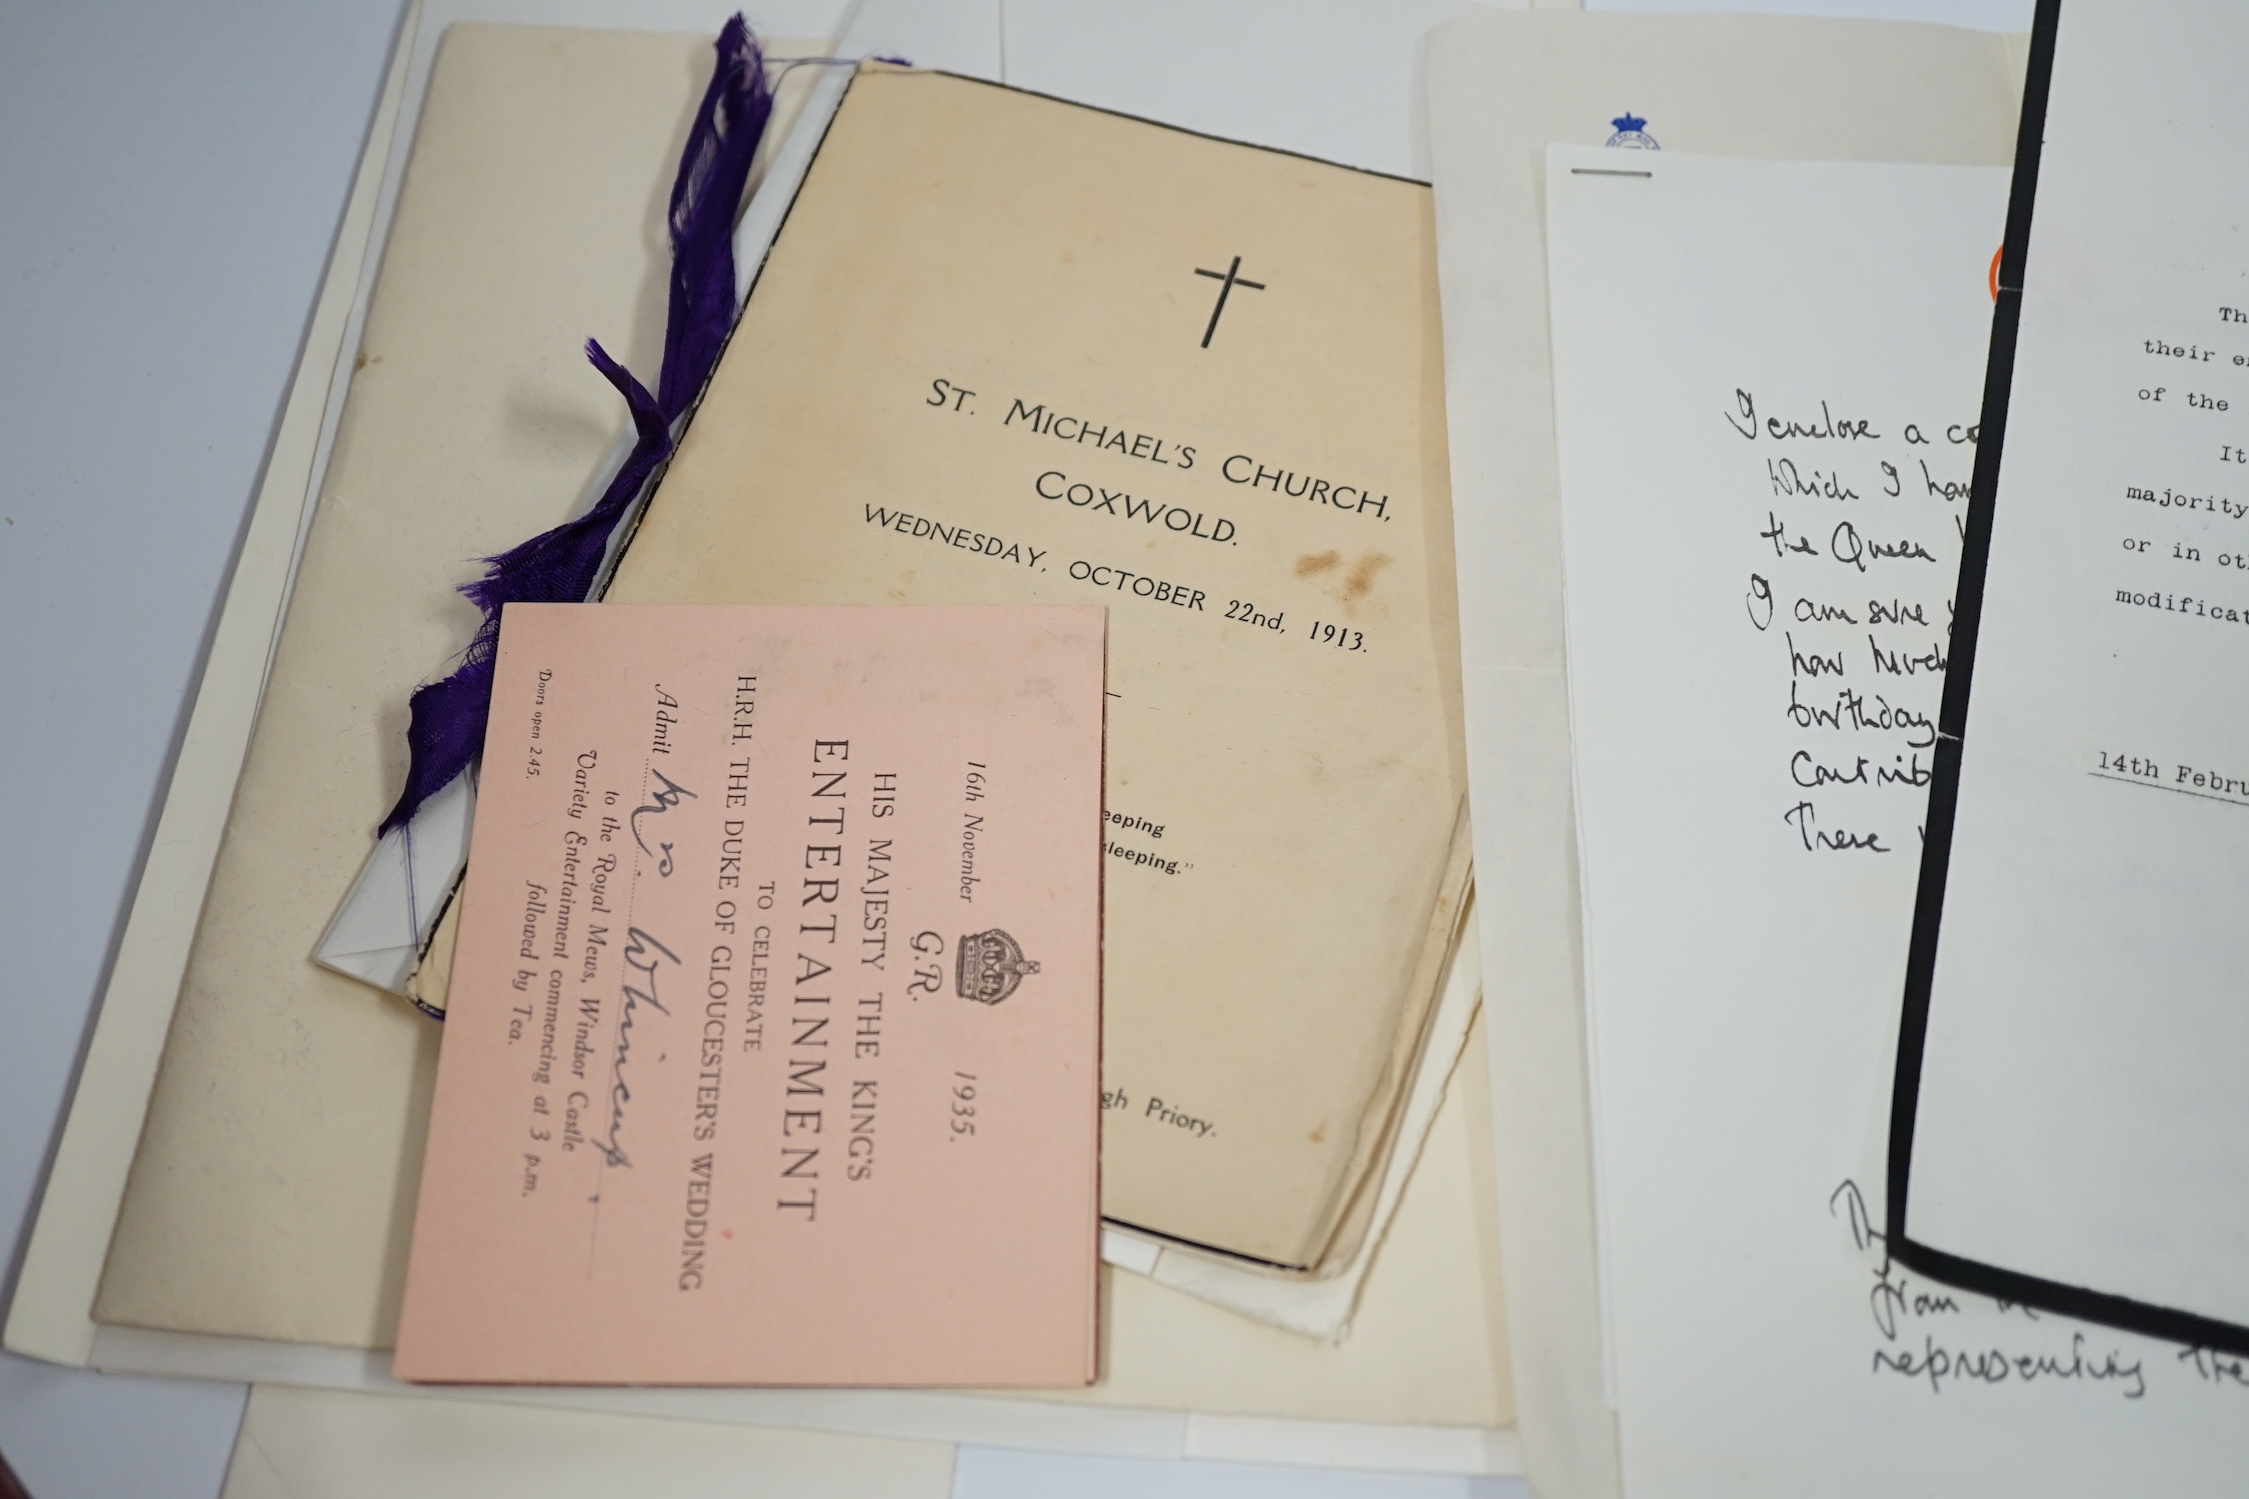 ST. MICHAEL'S CHURCH,
COXWOLD.
WEDNESDAY, OCTOBER 22nd, 1913.
eeping
leeping."
gh Priory.
16th November 1935.
G.R.
HIS MAJESTY THE KING'S
ENTERTAINMENT
TO CELEBRATE
H.R.H. THE DUKE OF GLOUCESTER'S WEDDING
Admit Mrs Whincup.
to the Royal Mews, Windsor Castle
Variety Entertainment commencing at 3 p.m.
Doors open 2.45. followed by Tea.
I enclose a co
which I hav
the Queen
I am sure y
how much
birthday
Contrib
There
from
representing the
Th
their e
of the
It
majority
or in ot
modificat
14th Febru